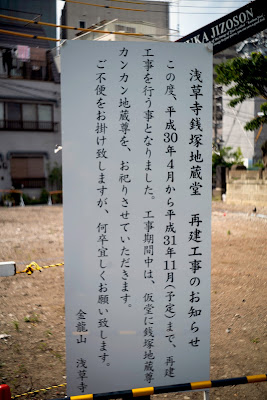 浅草寺銭塚地蔵堂　再建工事のお知らせ
この度、平成30年4月から平成31年11月(予定)まで、再建
工事を行う事となりました。工事期間中は、仮堂に銭塚地蔵尊
カンカン地蔵尊を、お祀りさせていただきます。
ご不便をお掛け致しますが、何卒宜しくお願い致します。
金龍山　浅草寺
UKA JIZOSON